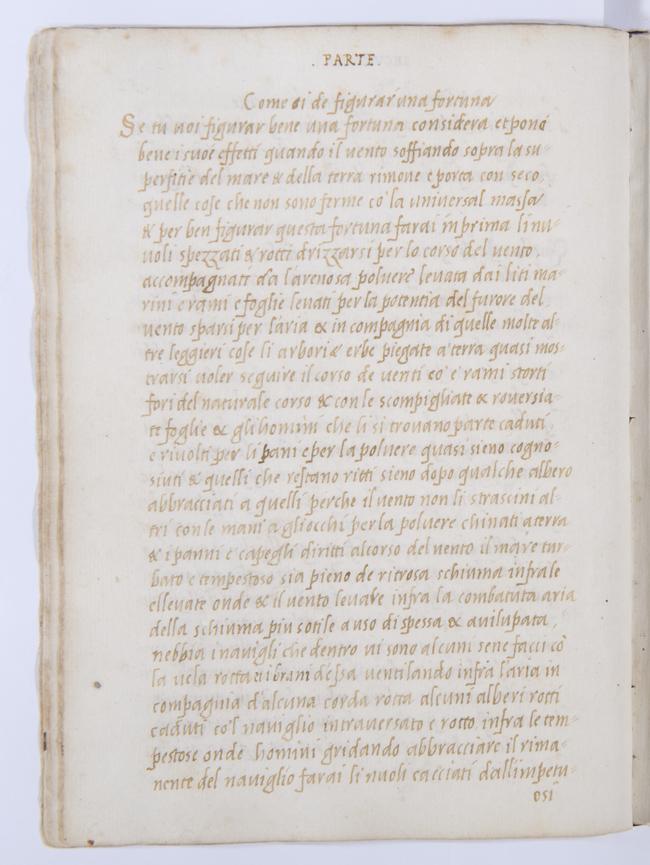 . PARTE .
Come si de figurar una fortuna
Se tu uoi figurar bene una fortuna considera et pone
bene i suoé effetti quando il uento soffiando sopra la su-
perfitie del mare & della terra rimoue e porta con seco
quelle cose che non sono ferme cō la uniuersal massa
& per ben figurar questa fortuna farai in prima li nu-
uoli spezzati & rotti drizzarsi per lo corso del uento
accompagnati da l'arenosa poluere leuata dai liti ma-
rini e rami e foglie leuati per la potentia del furore del
uento sparsi per l'aria & in compagnia di quelle molte al-
tre leggieri cose li arbori & erbe piegate a terra quasi mos-
trarsi uoler seguire il corso de uenti co e rami storti
fori del naturale corso & con le scompigliate & rouersia-
te foglie & gli homini che li si trouano parte caduti
e riuolti per li pani e per la poluere quasi sieno cogno-
siuti & quelli che restano ritti sieno dopo qualche albero
abbracciati a quelli perche il uento non li strascini al-
tri con le mani a gli occhi per la poluere chinati a terra
& i panni e capegli diritti al corso del uento il mare tur-
bato e tempestoso sia pieno de ritrosa schiuma infra le
elleuate onde & il uento leuare infra la combatuta aria
della schiuma piu sotile a uso di spessa & auilupata
nebbia i nauigli che dentro ui sono alcuni sene facci cō
la uela rotta e i brani dessa uentilando infra l'aria in
compagnia d'alcuna corda rotta alcuni alberi rotti
caduti co'l nauiglio intrauersato e rotto infra le tem-
pestose onde homini gridando abbracciare il rima-
nente del nauiglio farai li nuoli cacciati dall impetu-
osi